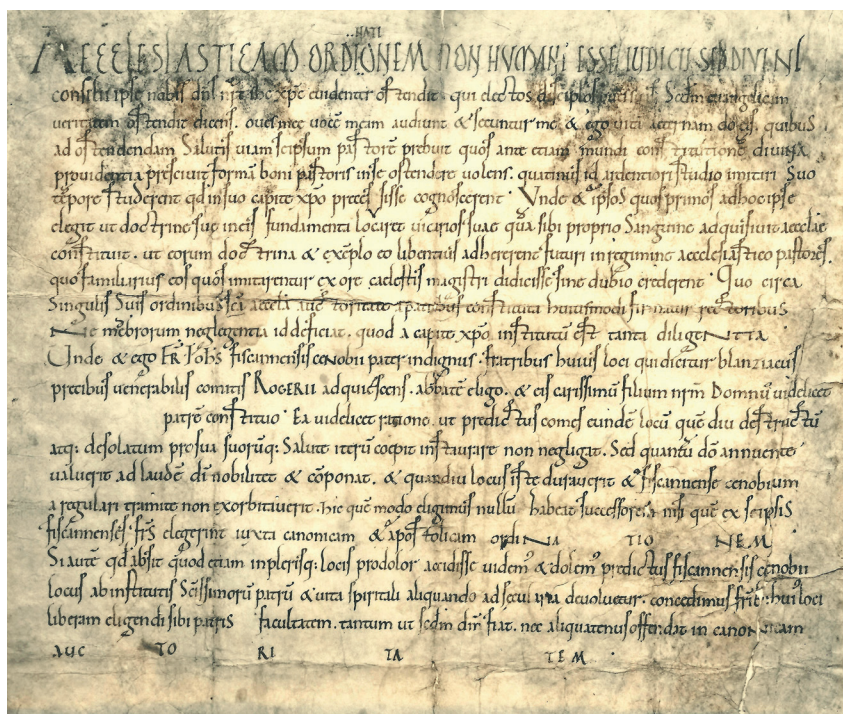 NATI
AECCLESIASTICAM ORDIONEM NON HUMANI ESSE IUDICII SED DIVINI
consilii ipse nobis dn̄s nr̄ ihc xp̄c euidenter ostendit qui electos Secdm euangelicam
ueritatem ostendit dicens. oues mee uocē meam audiunt & secuntur me & ego uitā aeternam do eis. quibus
ad ostendendam Salutis uiam seipsum pastorē prebuit quos ante etiam mundi constitutionē diuina
prouidentia presciuit formā boni pastoris in se ostendere uolens. quatinus id ardentiori studio imitari Suo
tēpore studerent qd in suo capite xp̄o precessisse cognoscerent. Vnde & ipsos quos primos ad hoc ipse
elegit ut doctrine sue in eis fundamenti locaret uicarios suae quā sibi proprio Sanguine adquisiuit aecclae
constituit. ut eorum doctrina & exēplo eo libentius adhererent futuri in regimine aecclesiastico pastores.
quo familiarius eos quos imitarentur ex ore caelestis magistri didicisse sine dubio crederent. Quo circa
Singulis Suis ordinibus scā aecclā auctoritate a patribus constituta huiusmodi rectoribus
Ne mēbrorum neglegentia id deficiat. quod a capite xp̄o institutū est tanta diligeNTIA
Unde & ego FR Ioh̄s fiscannensis cenobii pater indignus fratribus huius loci qui dicitur blanziacus
precibus venerabilis comitis ROGERII adquiescens. abbatē eligo. & eis carissimū filium nrm̄ Domnū uidelicet
patrē constituo. Ea uidelicet ratione. ut predictus comes eundē locū quē diu destructū
atq: desolatum pro sua suorūq: Salute iterū coepit instaurare non negligat. Sed quantū dō annuente
ualuerit ad laudē dī nobilitet & cōponat. & quandiu locus iste durauerit & fiscannense cenobium
a regulari tramite non exorbitauerit. hic quē modo eligimus nullū habeat successorē nisi quē ex seipsis
fiscannenses fr̄s elegerint iuxta canonicam & apostolicam ordiNA TIO NEM
Si autē qd absit quod etiam in plerisq: locis pro dolor accidisse uidem' & dolem' predictus fiscannensis cenobii
locus ab institutis Scissimorū patrū & uita spiritali aliquando ad secularia deuoluetur. concedimus fr̄ib: hui' loci
liberam eligendi sibi patris facultatem. tantum ut sedm dm̄ fiat. nec aliquatenus offendat in canonicam
AUC TO RI TA TEM